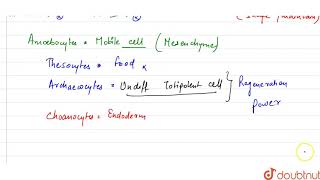 (shape maintain)
Amoebocytes = Mobile cell (Mesenchyme)
Thesocytes = food
Archaeocytes = Undiff Totipotent cell } Regeneration power
Choanocytes = Endoderm
doubtnut